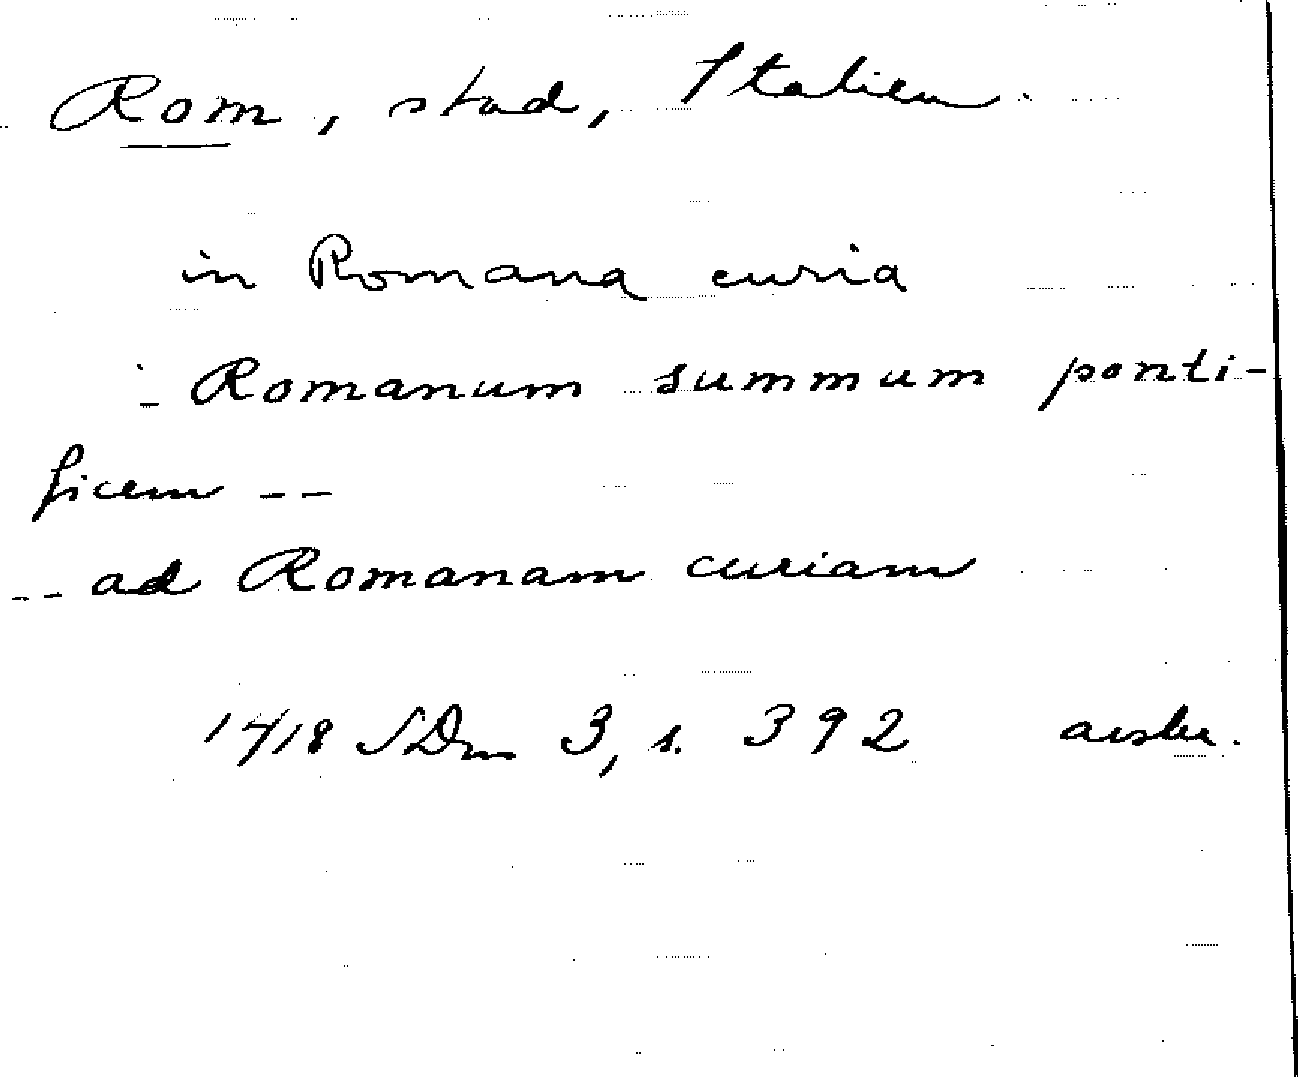 Rom, stad, Italien.
in Romana curia
- Romanum summum ponti-
ficem --
-- ad Romanam curiam
1418 SDm 3, s. 392 avskr.